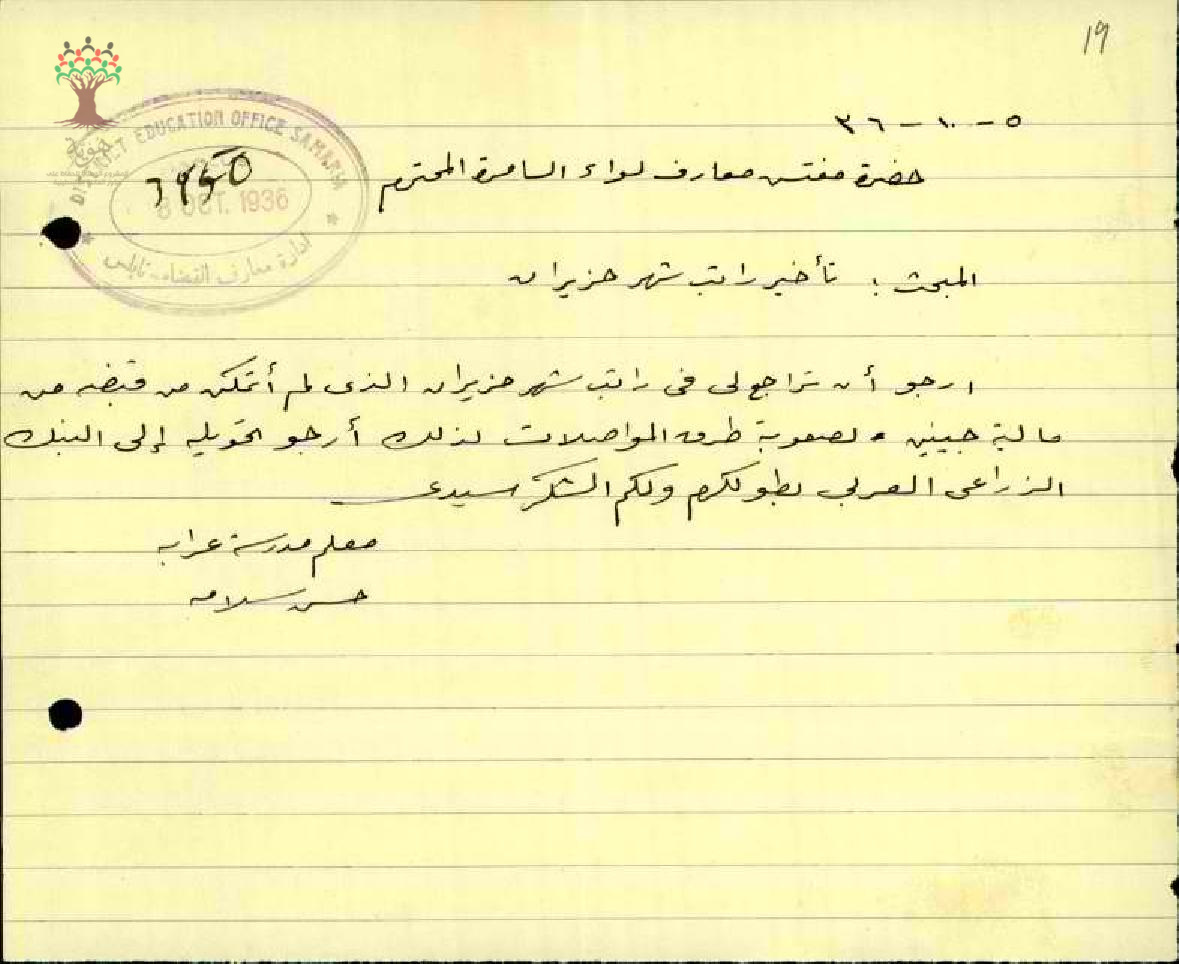 19
٥ - ١٠ - ٣٦
حضرة مفتش معارف لواء السامرة المحترم
DISTRICT EDUCATION OFFICE SAMARIA
8 OCT. 1936
ادارة معارف القضاء نابلس
المبحث : تأخير راتب شهر حزيران
ارجو أن تراجع لى فى راتب شهر حزيران الذى لم أتمكن من قبضه من
مالية جنين لصعوبة طرق المواصلات لذلك أرجو تحويله إلى البنك
الزراعى العربي ولكم الشكر سيدى
معلم مدرسة عرابه
حسن سلامه